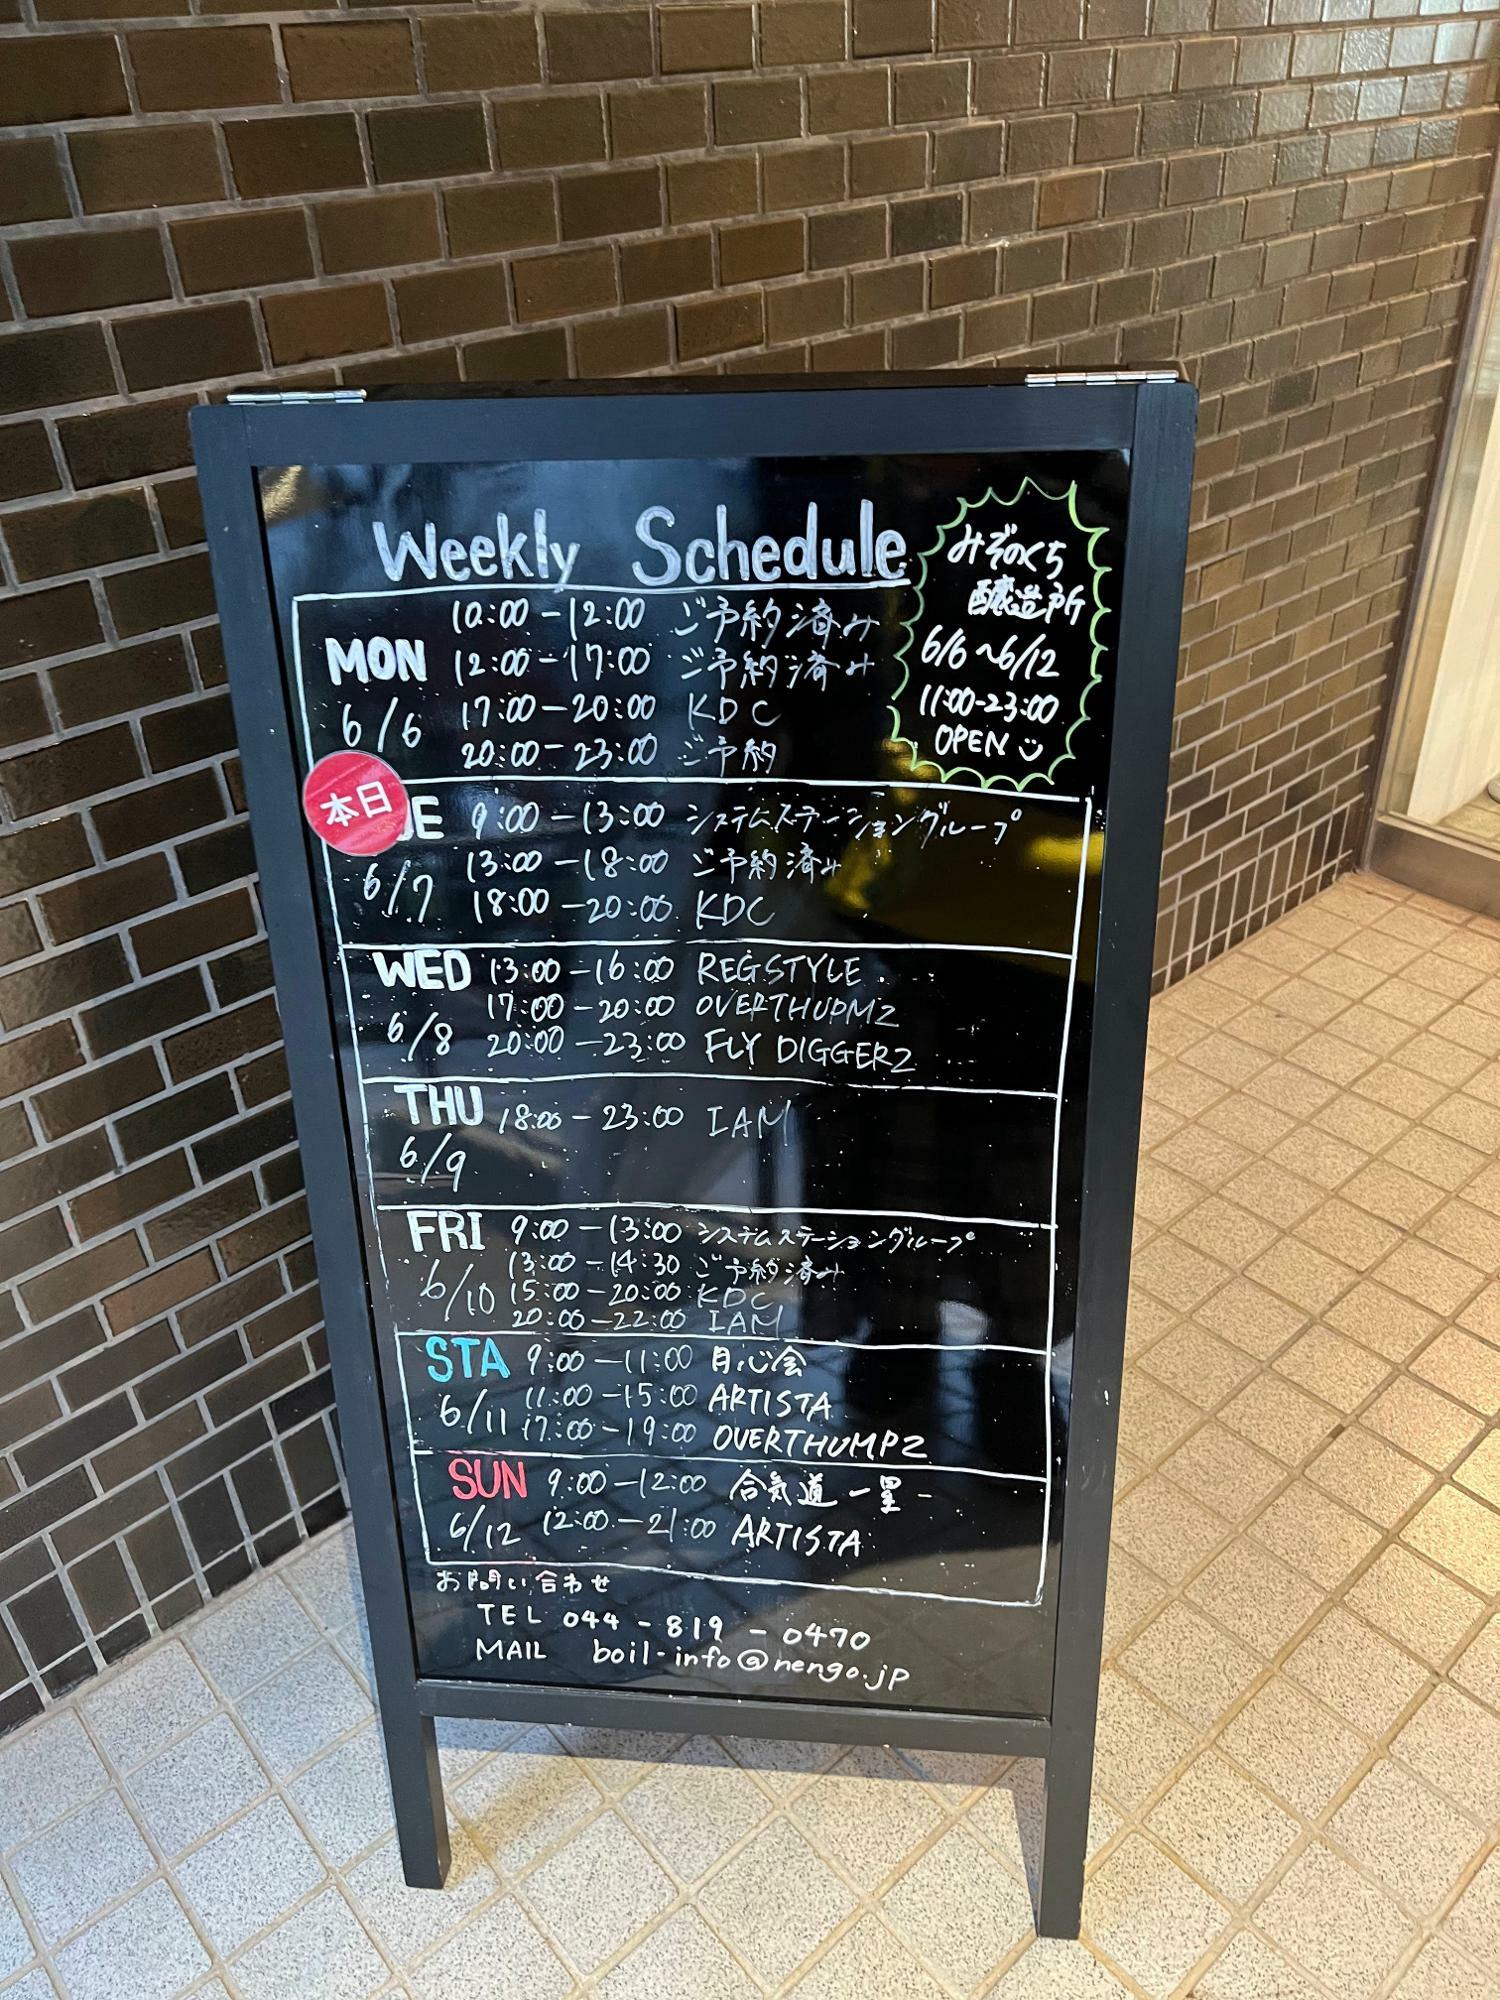 Weekly Schedule
みぞのくち
醸造所
6/6~6/12
11:00-23:00
OPEN
MON 10:00-12:00 ご予約済み
12:00-17:00 ご予約済み
6/6 17:00-20:00 KDC
20:00-23:00 ご予約
本日
UE 9:00-13:00 システムステーショングループ
13:00-18:00 ご予約済み
6/7 18:00-20:00 KDC
WED 13:00-16:00 REGSTYLE
17:00-20:00 OVERTHUPMZ
6/8 20:00-23:00 FLY DIGGERZ
THU 18:00-23:00 IAM
6/9
FRI 9:00-13:00 システムステーショングループ
13:00-14:30 ご予約済み
6/10 15:00-20:00 KDC
20:00-22:00 IAM
STA 9:00-11:00 月心会
11:00-15:00 ARTISTA
6/11 17:00-19:00 OVERTHUMPZ
SUN 9:00-12:00 合気道-星-
6/12 12:00-21:00 ARTISTA
お問い合わせ
TEL 044-819-0470
MAIL boil-info@nengo.jp